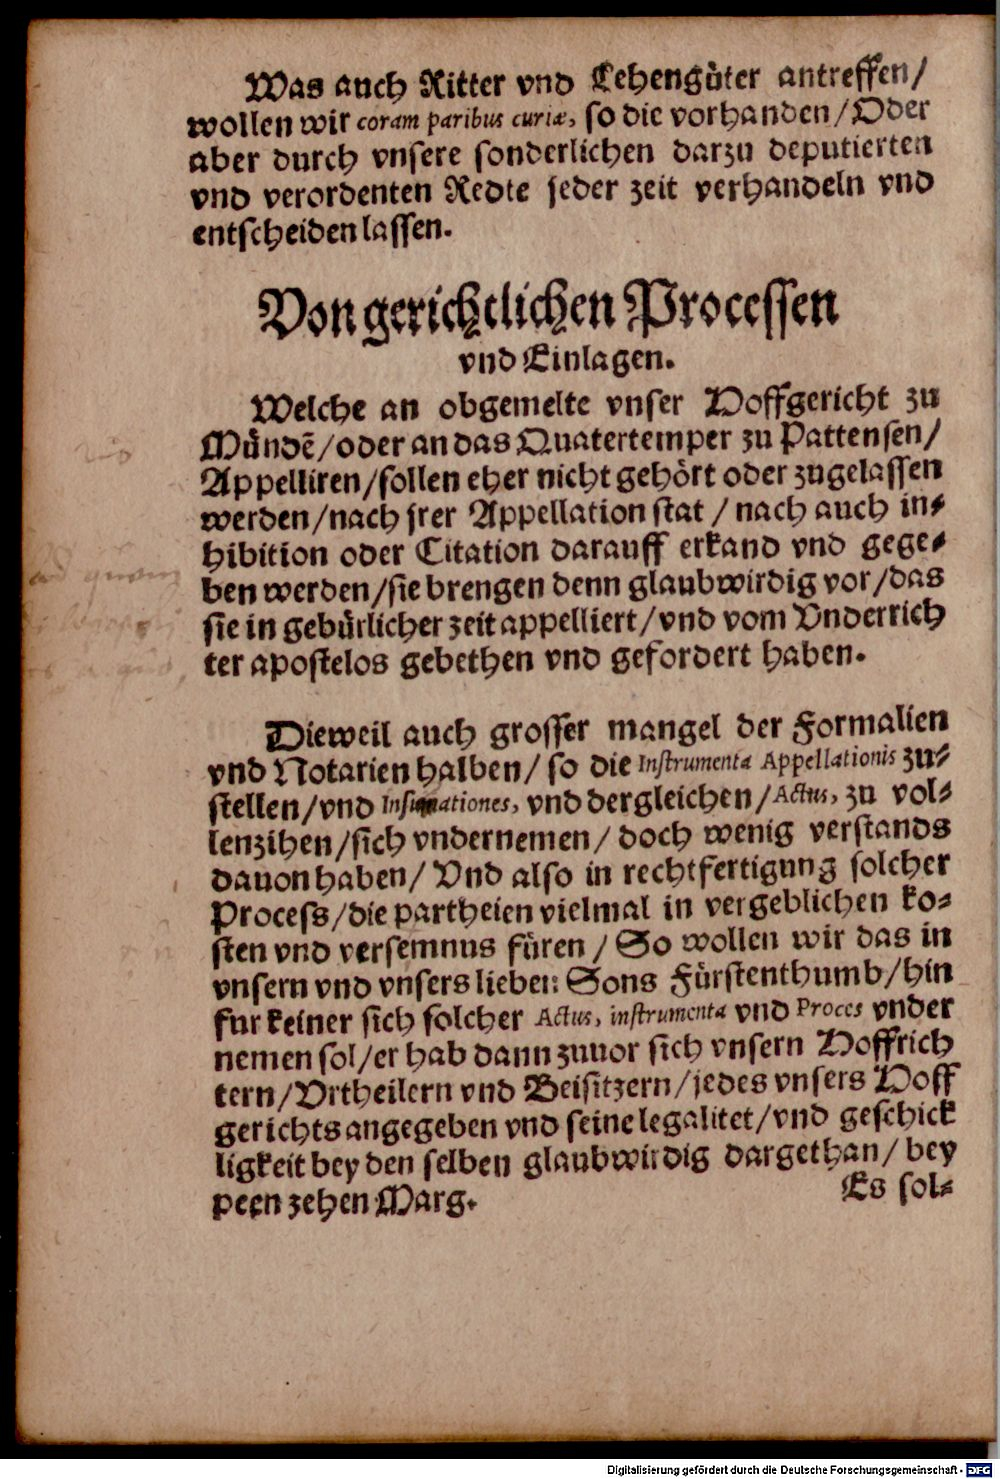 Was auch Ritter vnd Lehengüter antreffen/
wollen wir coram paribus curiæ, so die vorhanden/Oder
aber durch vnsere sonderlichen darzu deputierten
vnd verordenten Redte jeder zeit verhandeln vnd
entscheiden lassen.
Von gerichtlichen Processen
vnd Einlagen.
Welche an obgemelte vnser Hoffgericht zu
Mündẽ/oder an das Quatertemper zu Pattensen/
Appelliren/sollen eher nicht gehört oder zugelassen
werden/nach jrer Appellation stat / nach auch in⸗
hibition oder Citation darauff erkand vnd gege⸗
ben werden/sie brengen denn glaubwirdig vor/das
sie in gebürlicher zeit appelliert/vnd vom Vnderrich
ter apostelos gebethen vnd gefordert haben.
Dieweil auch grosser mangel der Formalien
vnd Notarien halben/ so die Instrumenta Appellationis zu⸗
stellen/vnd Insinuationes, vnd dergleichen/Actus, zu vol⸗
lenzihen/sich vndernemen/ doch wenig verstands
dauon haben/ Vnd also in rechtfertigung solcher
Process/die partheien vielmal in vergeblichen ko⸗
sten vnd versemnus füren / So wollen wir das in
vnsern vnd vnsers lieben Sons Fürstenthumb/hin
fur keiner sich solcher Actus, instrumenta vnd Proces vnder
nemen sol/er hab dann zuuor sich vnsern Hoffrich
tern/Vrtheilern vnd Beisitzern/jedes vnsers Hoff
gerichts angegeben vnd seine legalitet/vnd geschick
ligkeit bey den selben glaubwirdig dargethan/ bey
peen zehen Marg.
Es sol⸗
Digitalisierung gefördert durch die Deutsche Forschungsgemeinschaft - DFG